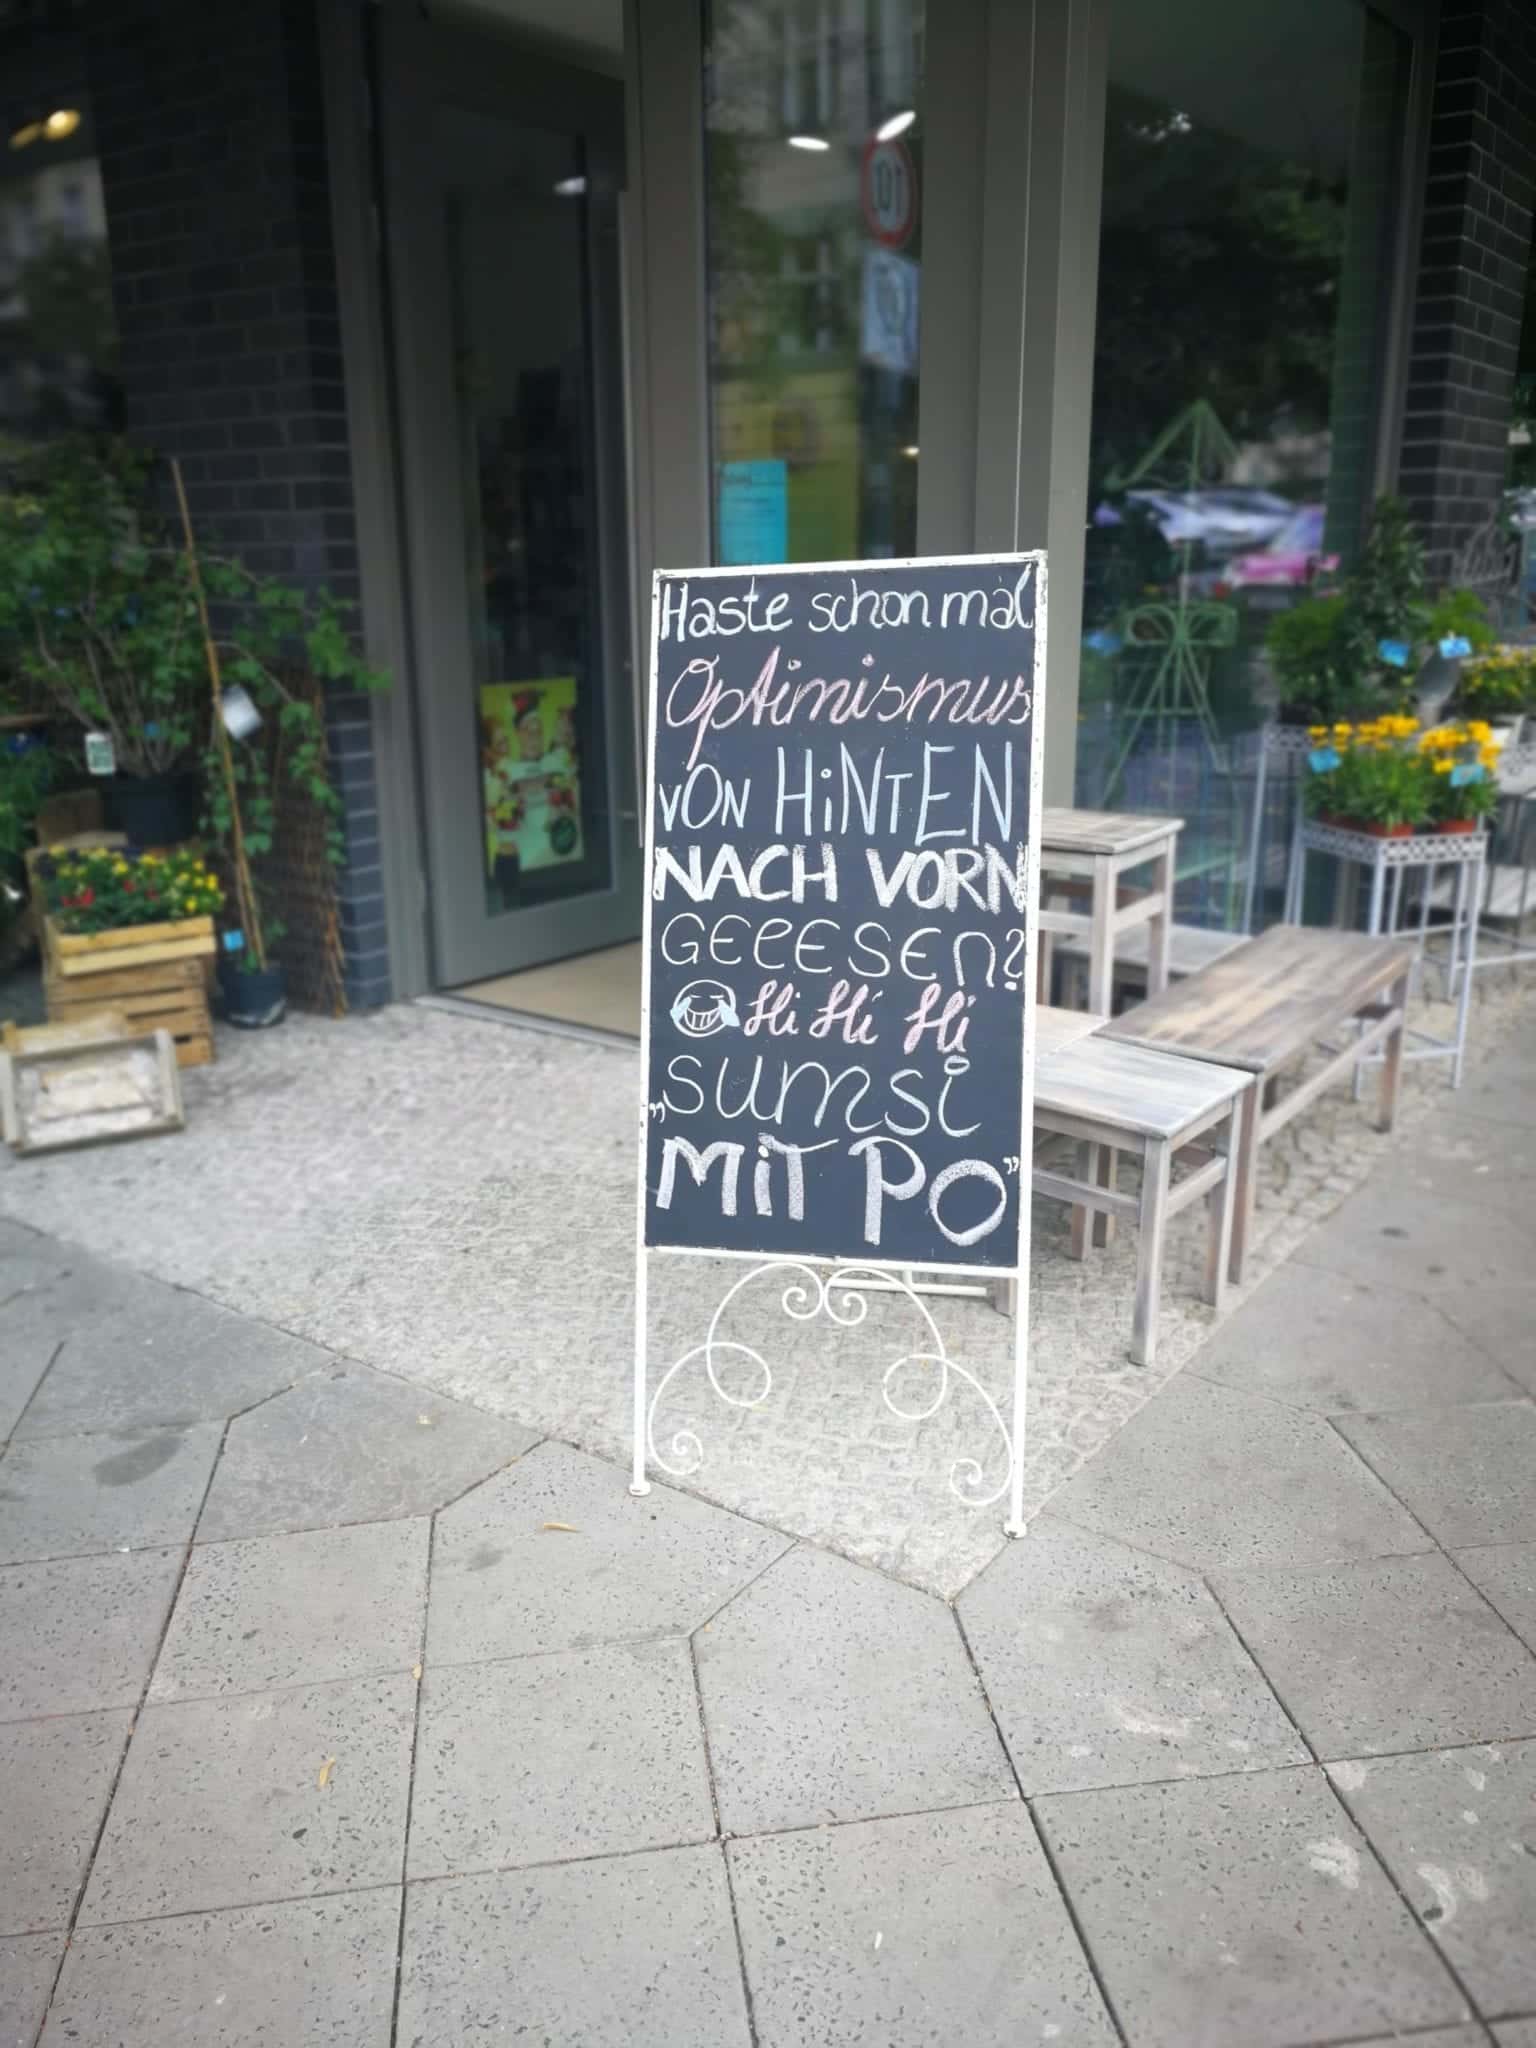 Haste schon mal
Optimismus
VON HiNTEN
NACH VORN
GELESEN?
😂 Hi Hi Hi
„SUMSi
MiT PO”